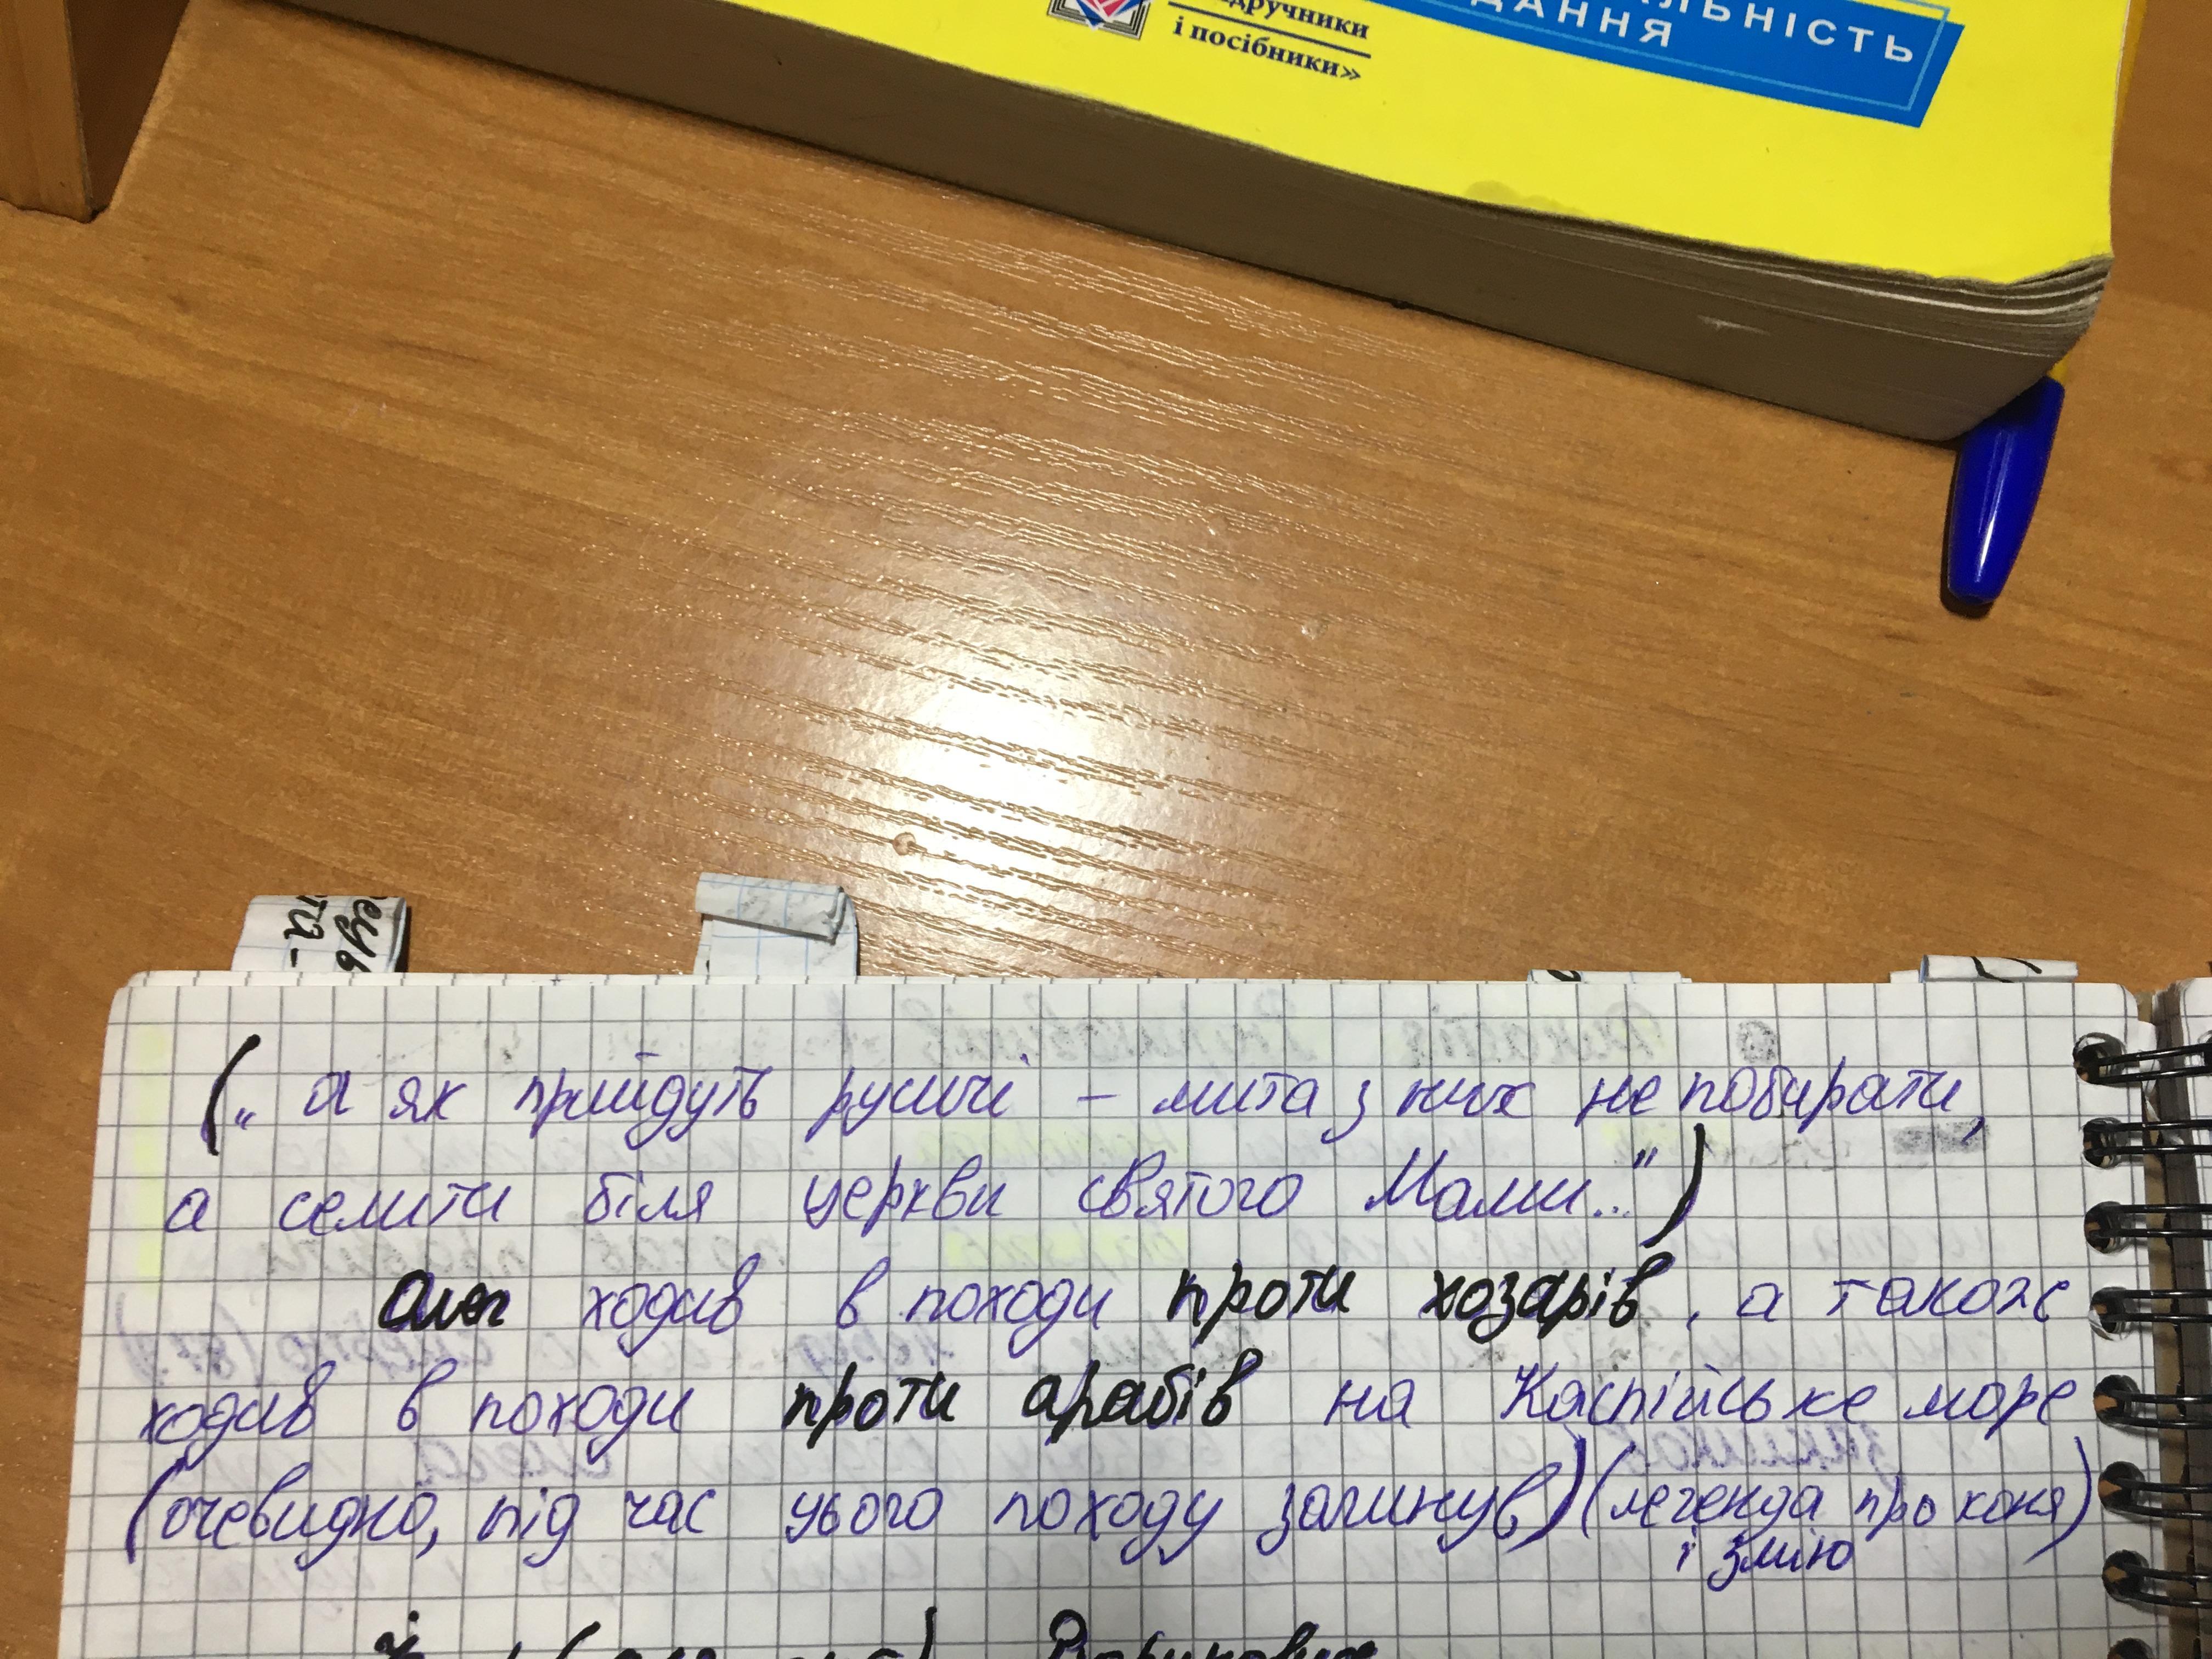 і посібники»
(„ а як прийдуть русичі – мита з них не побирати,
а селити біля церкви святого Мами..")
Олег ходив в походи проти хозарів, а також
ходив в походи проти арабів на Каспійське море
(очевидно, під час цього походу загинув) (легенда про коня)
і змію